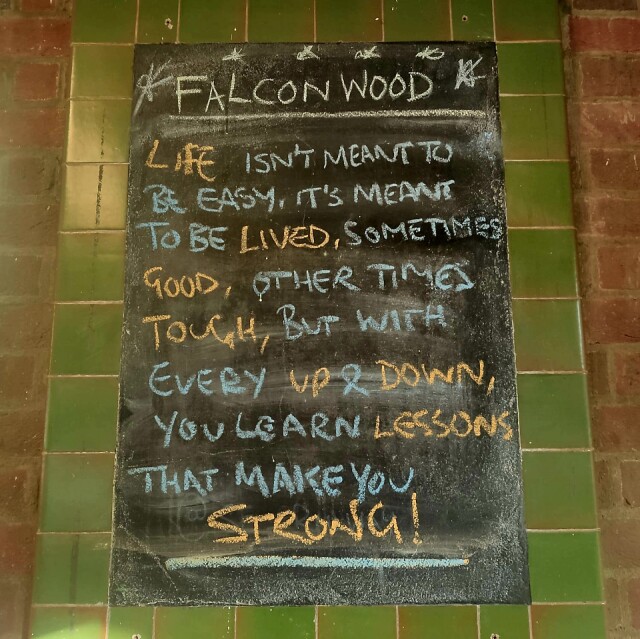 FALCONWOOD
LIFE ISN'T MEANT TO
BE EASY, IT'S MEANT
TO BE LIVED, SOMETIMES
GOOD, OTHER TIMES
TOUGH, BUT WITH
EVERY UP & DOWN,
YOU LEARN LESSONS
THAT MAKE YOU
STRONG!